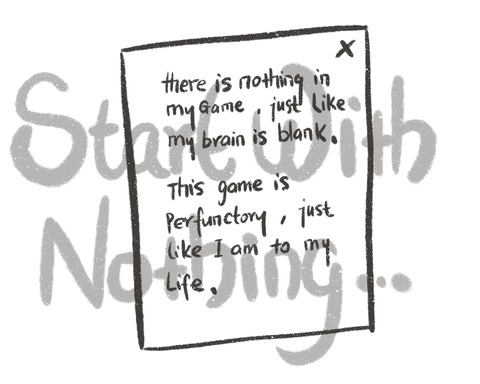 Start With
Nothing...
X
there is nothing in
my Game , just like
my brain is blank.
This game is
Perfunctory , just
like I am to my
Life.